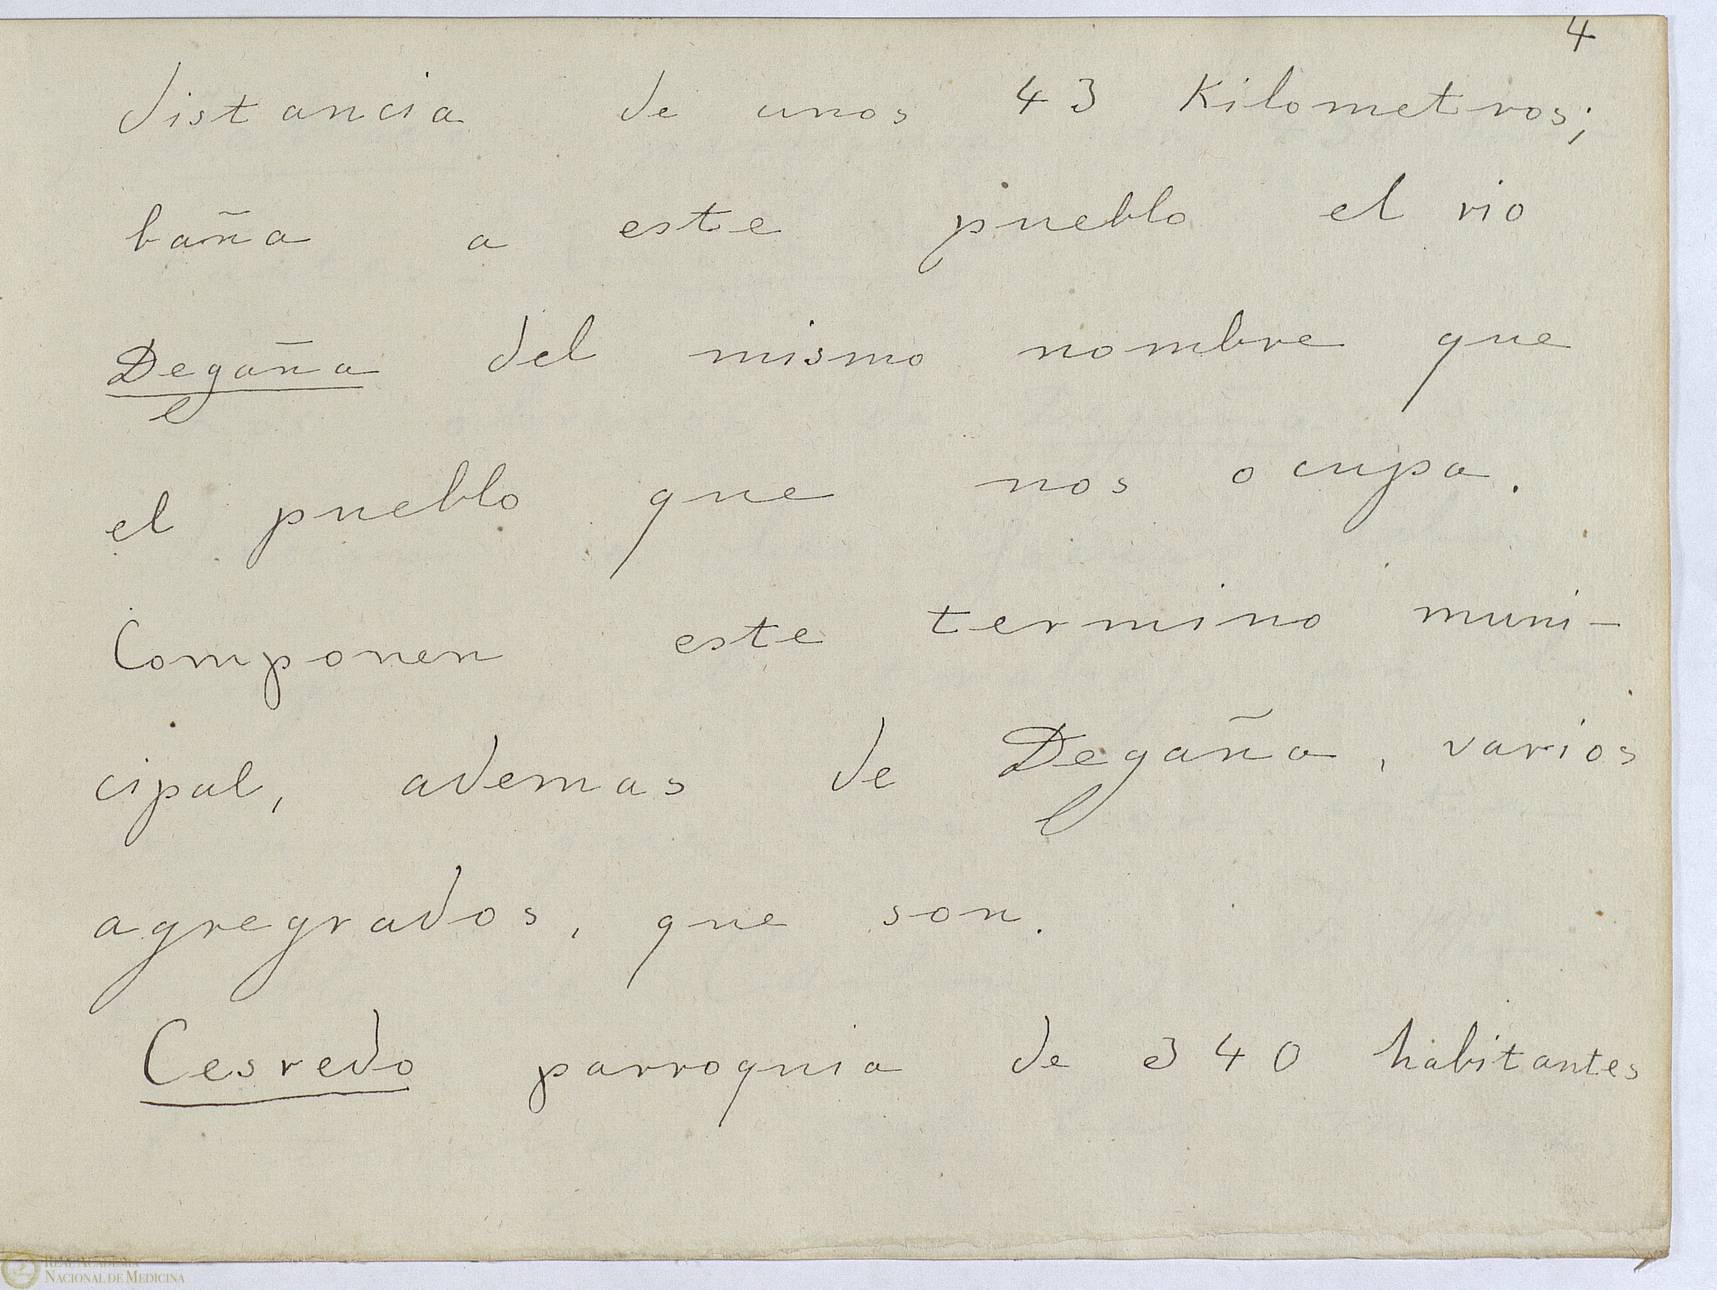 4
distancia de unos 43 Kilometros;
baña a este pueblo el rio
Degaña del mismo nombre que
el pueblo que nos ocupa.
Componen este termino muni-
cipal, ademas de Degaña, varios
agregrados, que son.
Cesredo parroquia de 340 habitantes
REAL ACADEMIA
NACIONAL DE MEDICINA